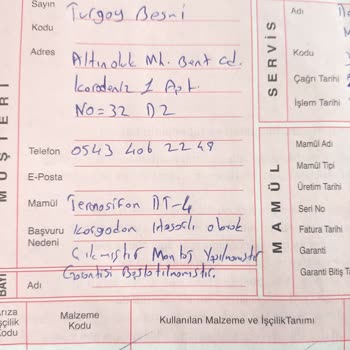 Sayın Turgay Besni
Kodu
Adres Altınoluk Mh. Bent cd.
Karadeniz 1 Apt.
No=32 D2
Telefon 0543 406 22 48
E-Posta
Mamül Termosifon DT-4
Başvuru Nedeni Kargodan Hasarlı olarak
Çıkmıştır Montaj Yapılmamıştır
Garantisi Başlatılmamıştır.
MÜŞTERİ
BAYİ
Adı
SERVİS
Adı
Kodu
Çağrı Tarihi
İşlem Tarihi
MAMÜL
Mamül Adı
Mamül Tipi
Üretim Tarihi
Seri No
Fatura Tarihi
Garanti
Garanti Bitiş T
arıza
işçilik
Kodu
Malzeme
Kodu
Kullanılan Malzeme ve İşçilikTanımı